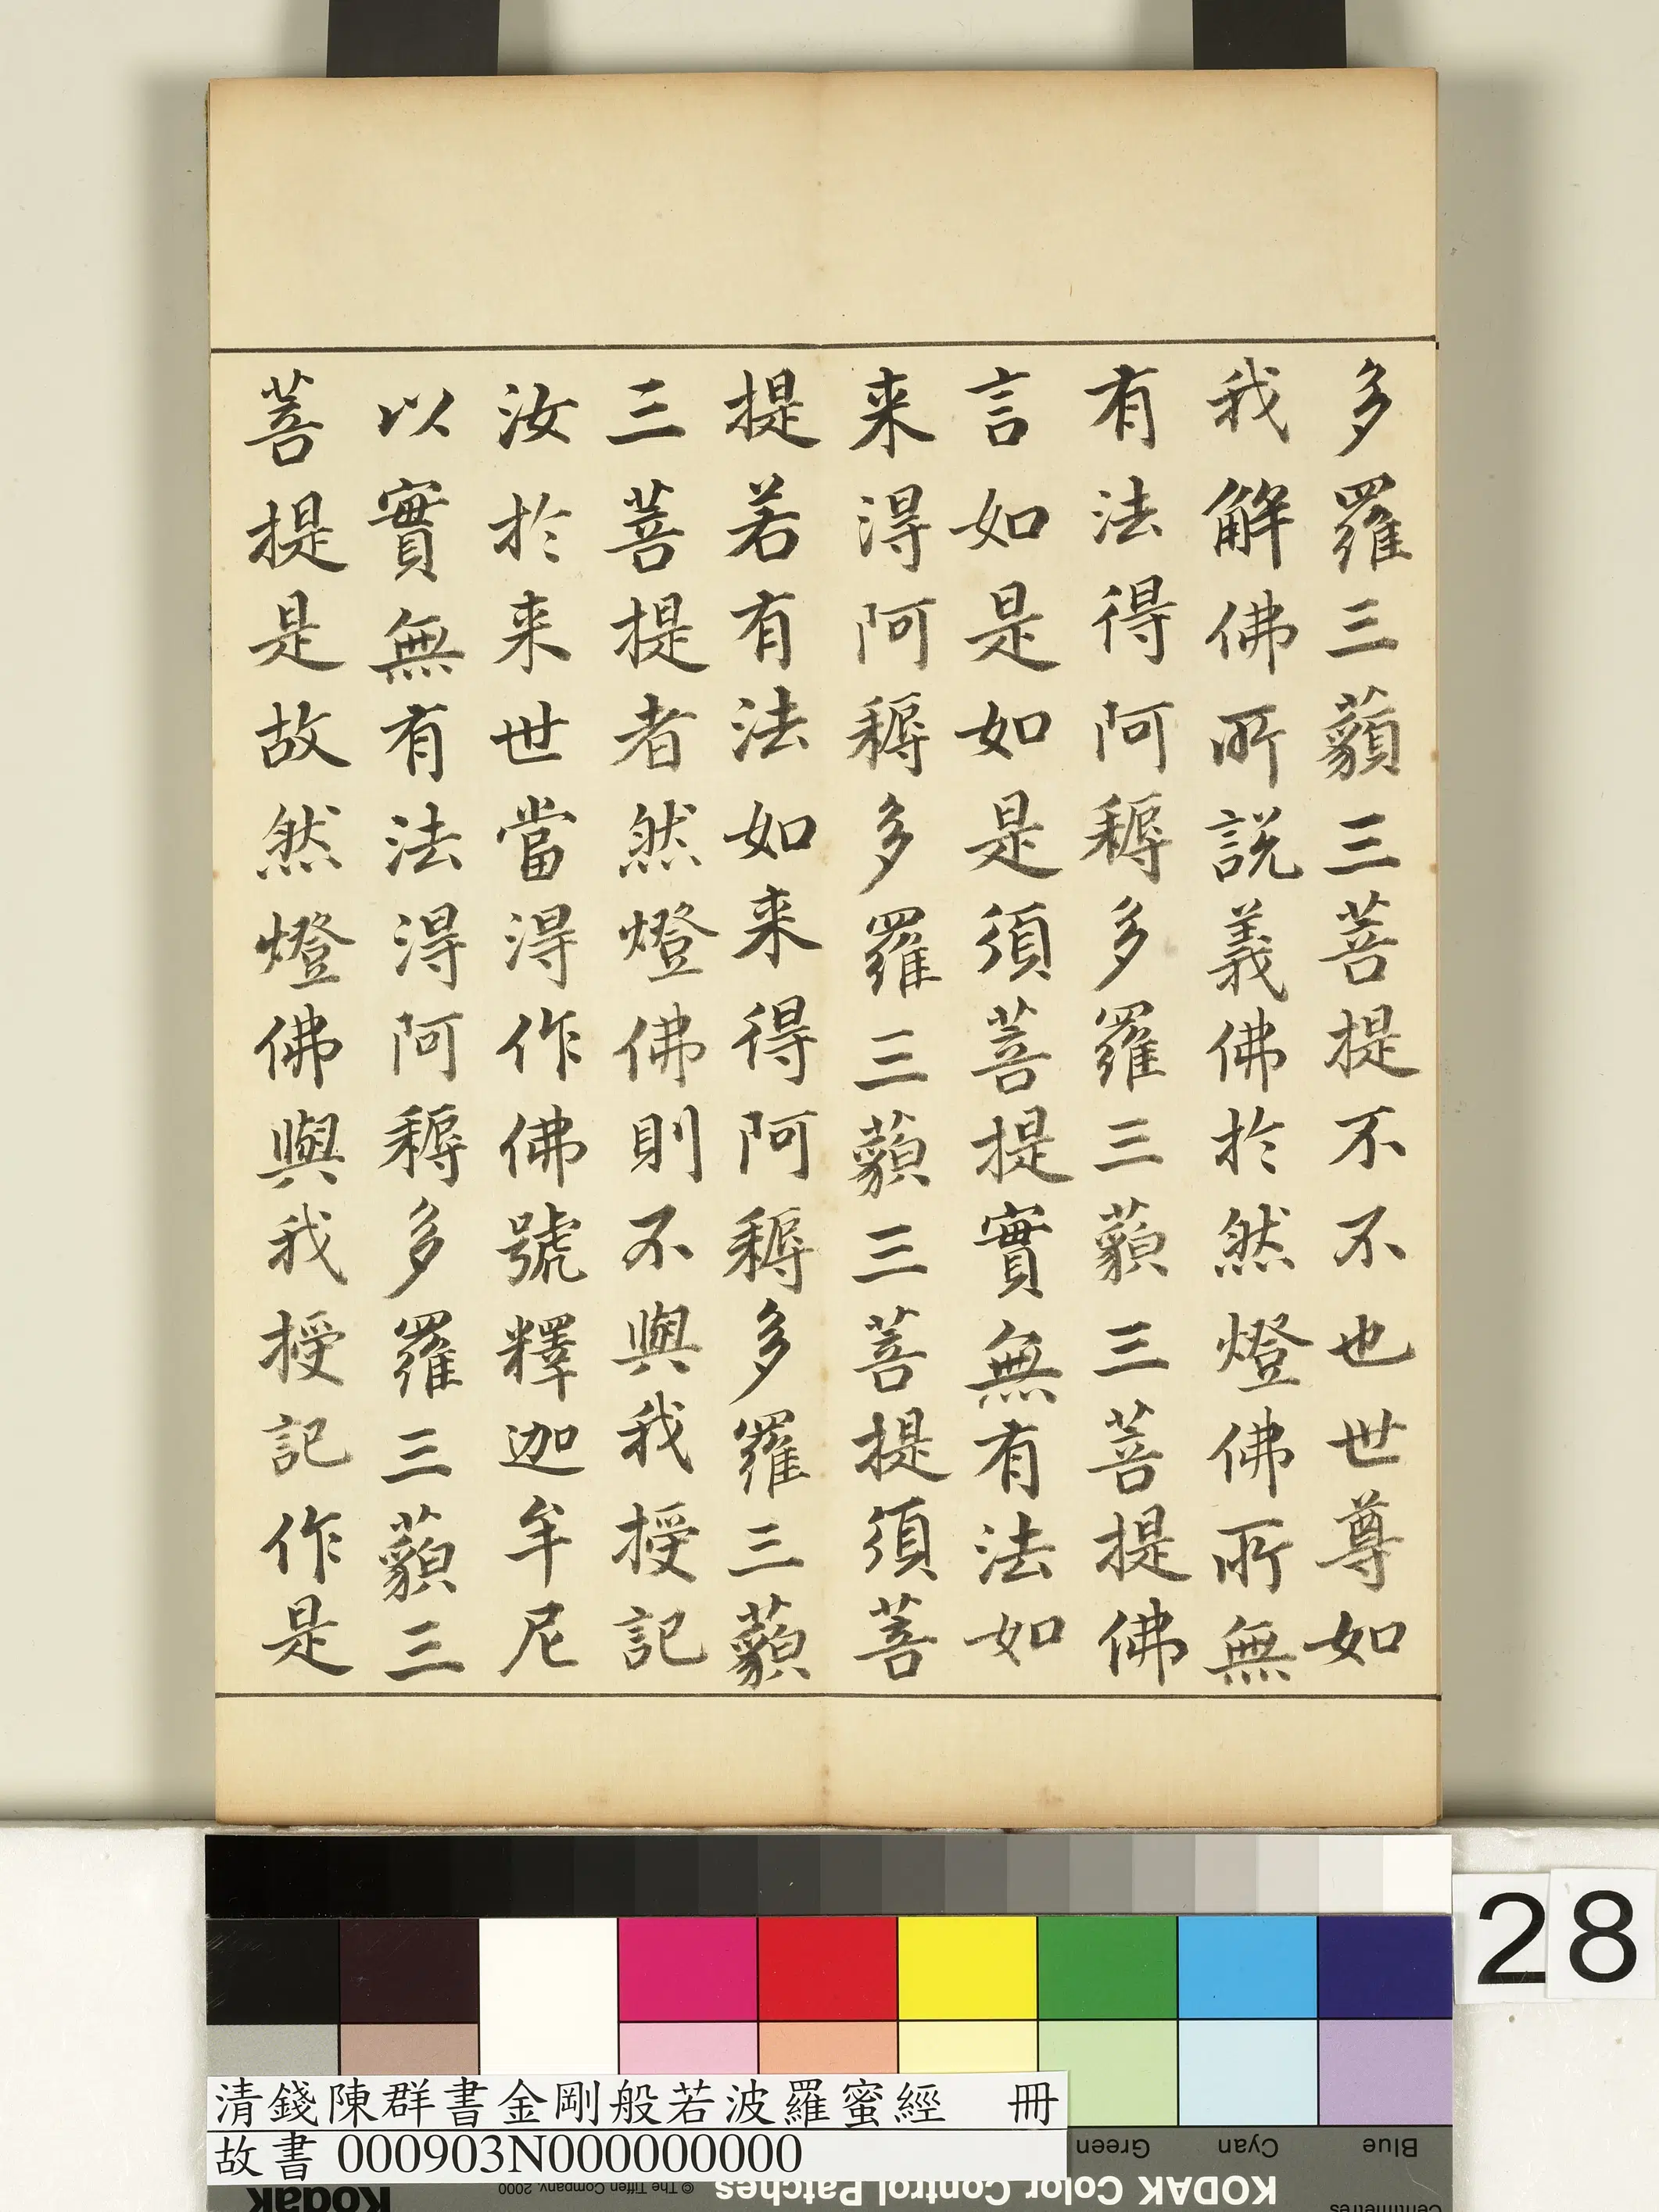 多羅三藐三菩提不不也世尊如
我解佛所説義佛於然燈佛所無
有法得阿耨多羅三藐三菩提佛
言如是如是須菩提實無有法如
来得阿耨多羅三藐三菩提須菩
提若有法如来得阿耨多羅三藐
三菩提者然燈佛則不與我授記
汝於来世當得作佛號釋迦牟尼
以實無有法得阿耨多羅三藐三
菩提是故然燈佛與我授記作是
28
清錢陳群書金剛般若波羅蜜經 冊
故書 000903N000000000
Green Cyan Blue
KODAK Color Control Patches
© The Tiffen Company, 2000
Kodak
Centimetres